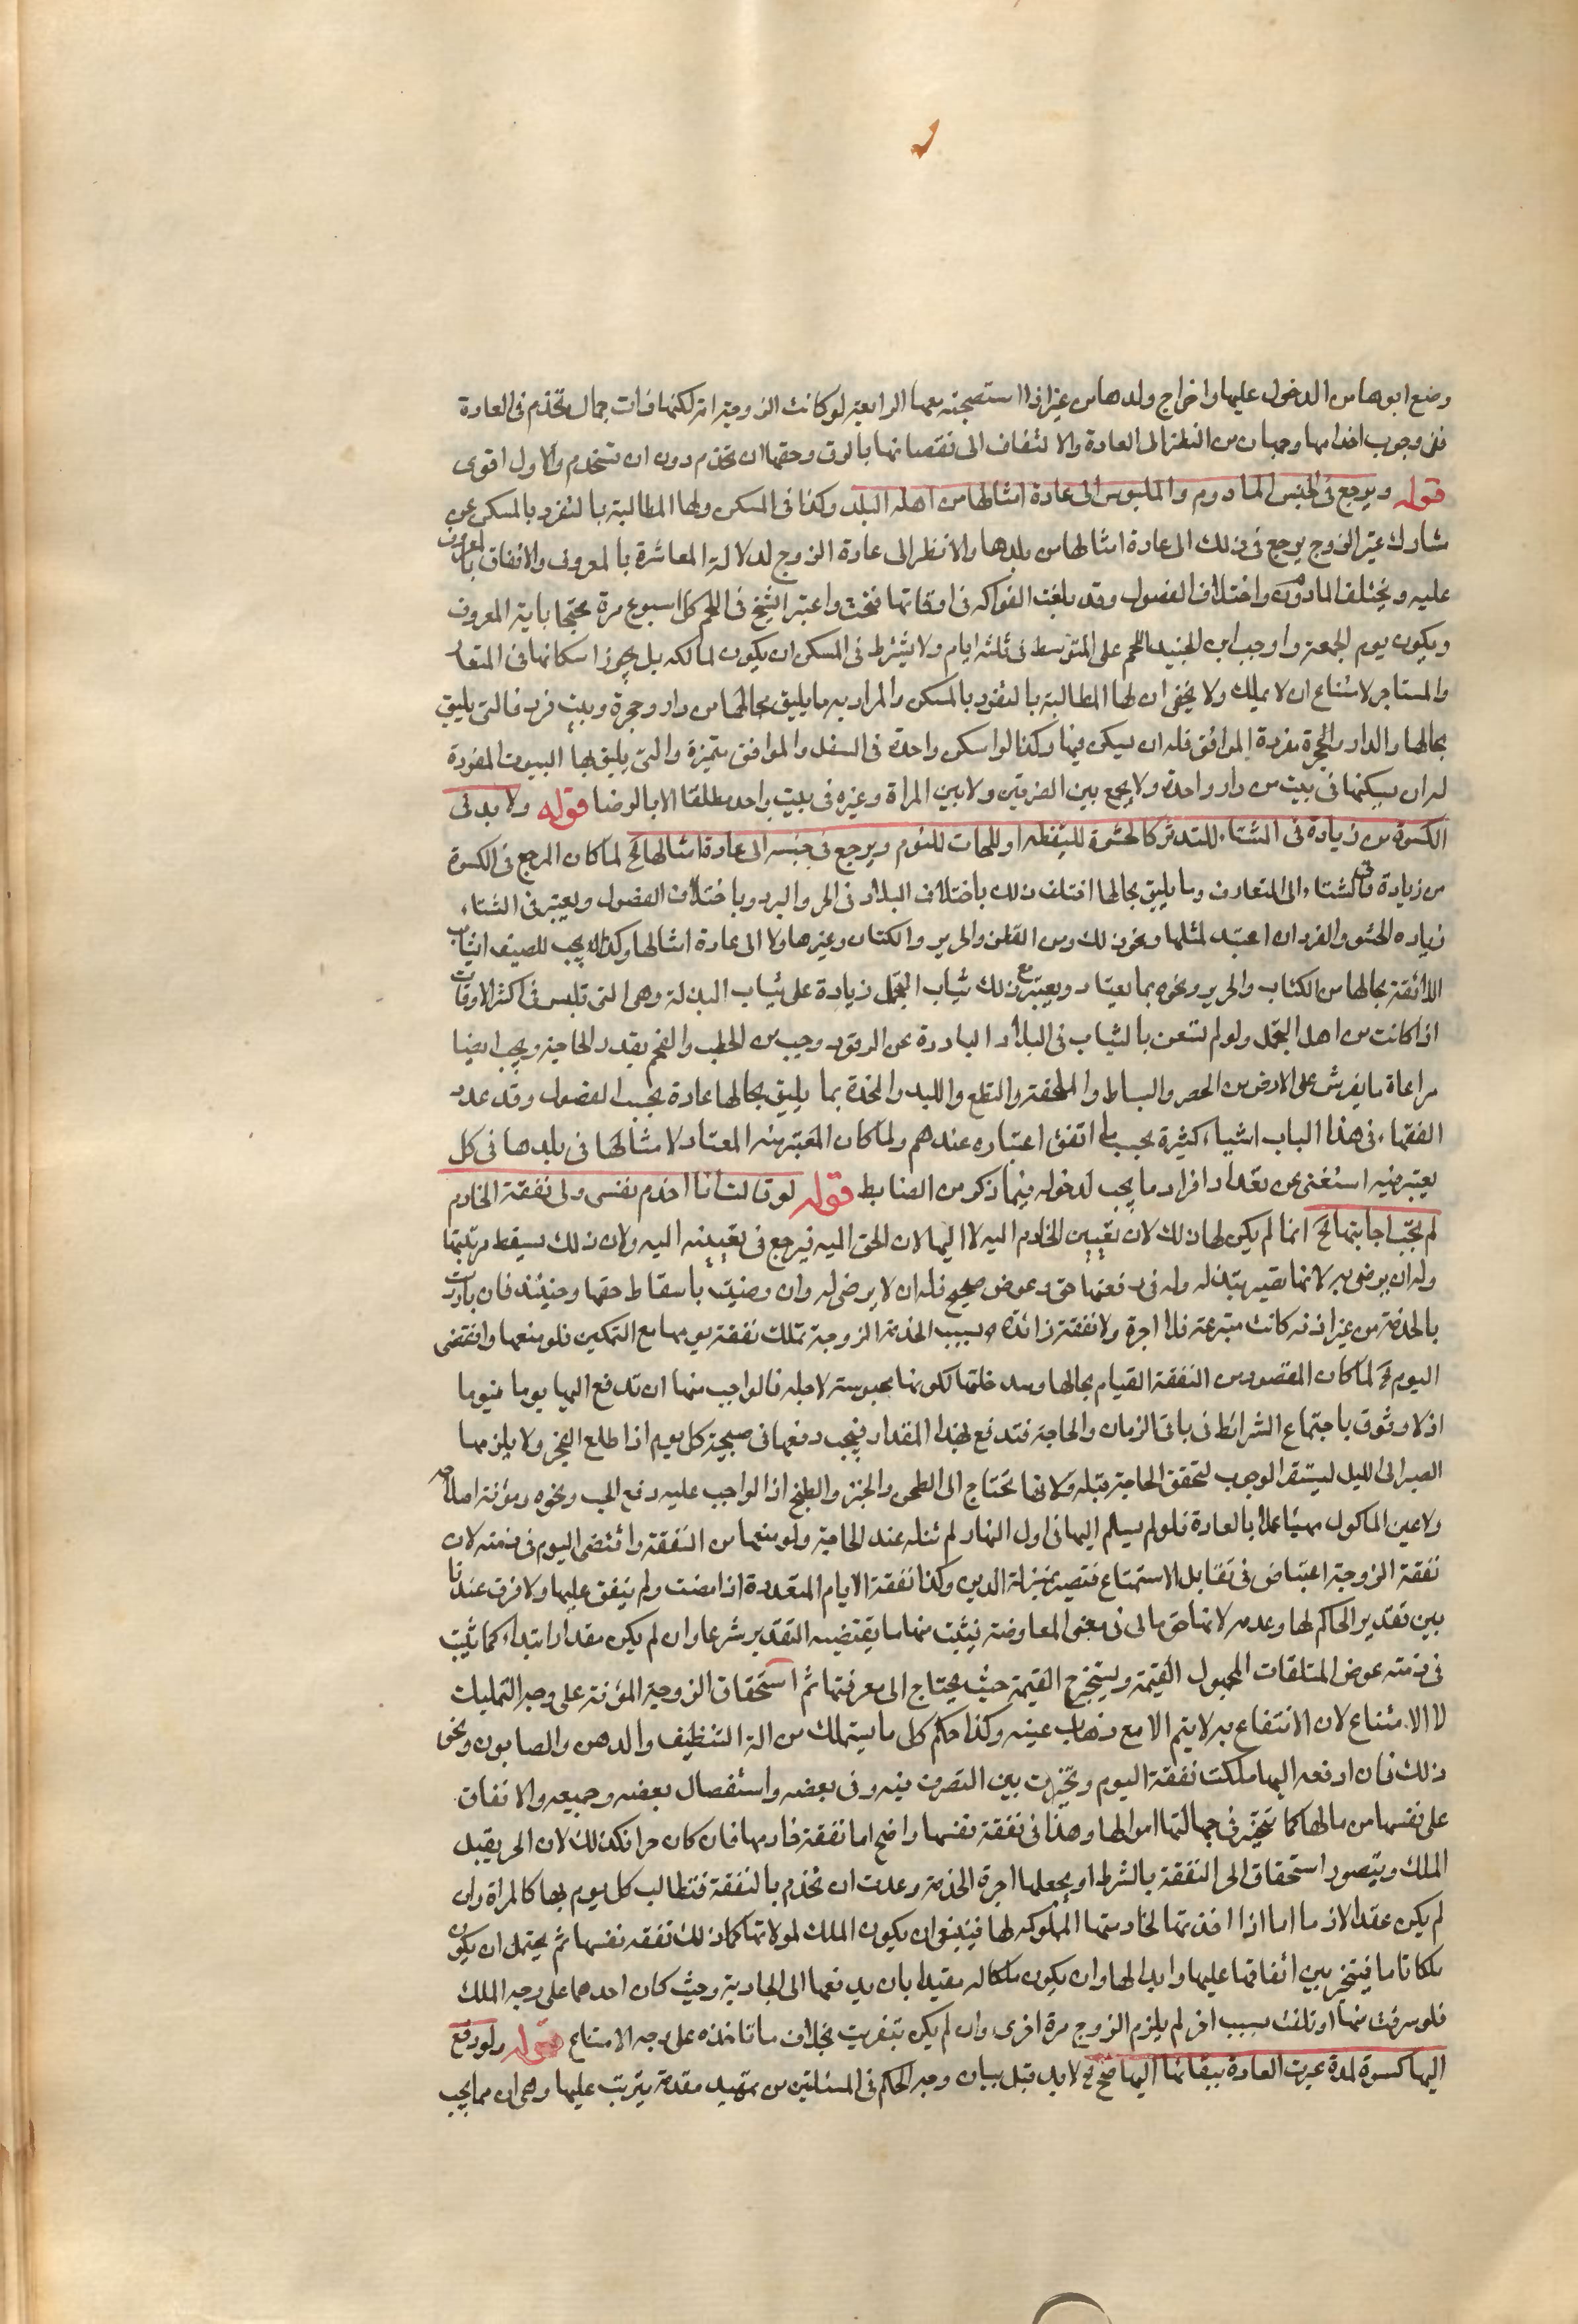 وضع ابوها من الدخول عليها واخراج ولدها من غير اذا استصحبته معها الرابعة لو كانت الزوجة امة لكنها ذات جمال تخدم فى العادة
ففى وجوب اخدامها وجهان من النظر الى العادة والالتفات الى نقصانها بالرق وحقها ان تخدم دون ان تستخدم والاول اقوى
قوله ويرجع فى الجنس المادوم والملبوس الى عادة امثالها من اهله البلد وكذا فى المسكن ولها المطالبة بالتفرد بالمسكن عن
مشارك غير الزوج يرجع فى ذلك الى عادة امثالها من بلدها والانظر الى عادة الزوج لدلالة المعاشرة بالمعروف والانفاق بالمعروف
عليه ويختلف المادوم واختلاف الفصول وقد بلغت الفواكه فى اوقاتها فتجب واعتبر الشيخ فى اللحم كل اسبوع مرة محتجا باية المعروف
ويكون يوم الجمعة واوجب ابن الجنيد اللحم على المتوسط فى ثلثة ايام ولا يشترط فى المسكن ان يكون لمالكه بل يجوز اسكانها فى المتعار
والمستاجر لامتناع ان لا يملك ولا يخفى ان لها المطالبة بالتفرد بالمسكن والمراد به ما يليق بحالها من دار وحجرة وبيت فرد فالتى يليق
بحالها الدار والحجرة مفردة الموافق فله ان يسكن فيها وكذا لو اسكن واحدة فى السفل والموافق متميزة والتى يليق بها البيوت المفردة
له ان يسكنها فى بيت من دار واحدة ولا يجمع بين الضرتين ولا بين المراة وغيره فى بيت واحد مطلقا الا بالرضا قوله ولا بد فى
الكسوة من زيادة فى الشتاء للتدثر كالحشوة لليقظة او اللحاف للنوم ويرجع فى جنسه الى عادة امثالها الخ لما كان المرجع فى الكسوة
من زيادة فى الشتاء الى المتعارف وما يليق بحالها اختلف ذلك باختلاف البلاد فى الحر والبرد وباختلاف الفصول ويعتبر فى الشتاء
زياده الحشو والفرد ان اعتيد لمثلها ونحو ذلك ومن القطن والحرير والكتان وغيرها ولا الى عادة امثالها وكذا يجب للصيف الثياب
اللائقة بحالها من الكتاب والحرير ونحوه بما يعتاد ويعتبر مع ذلك ثياب التجمل زيادة على ثياب البذلة وهى التى تلبس فى اكثر الاوقات
اذا كانت من اهل التجمل ولو لم تستغن بالثياب فى البلاد الباردة عن الوقود وجب من الحطب والفحم بقدر الحاجة ويجب ايضا
مراعاة ما يفرش على الارض من الحصر والبساط والملحفة والنطع واللبد والمخدة بما يليق بحالها عادة بحسب الفصول وقد عدد
الفقهاء فى هذا الباب اشياء كثيرة بحسب ما اتفق اعتباره عندهم ولما كان المعتبر منه المعتاد لامثالها فى بلدها فى كل
يعتبر فيه استغنى عن تعداد افراد ما يجب لدخوله فيما ذكر من الضابط قوله لو قالت انا اخدم نفسى ولى نفقة الخادم
لم تجب اجابتها الخ انما لم يكن لها ذلك لان تعيين الخادم اليه لا اليها لان الحق اليه فيرجع فى تعيينه اليه ولان ذلك يسقط مرتبتها
وله ان يرضى به لانها تصير مبتذله وله فى رفعتها حق وعوض صحيح فله ان لا يرضى له وان رضيت باسقاط حقها وحينئذ فان بادرت
بالخدمة من غير اذنه كانت متبرعة فلا اجرة ولا نفقة زائدة بسبب الخدمة الزوجة تملك نفقة يومها مع التمكين فلو منعها وانقضى
اليوم الخ لما كان المقصود من النفقة القيام بحالها وسد خلتها لكونها محبوسة لاجله فالواجب منها ان تدفع اليها يوما فيوما
اذ لا وثوق باجتماع الشرائط فى باقى الزمان والحاجة فتدفع لهذا المقدار فيجب دفعها فى صبيحة كل يوم اذا طلع الفجر ولا يلزمها
الصبر الى الليل ليستقر الوجوب لتحقق الحاجة قبله ولانها تحتاج الى الطحن والخبز والطبخ اذ الواجب عليه دفع الحب ونحوه ومؤنة اصلاحه
ولا عين الماكول مهيئا عملا بالعادة فلو لم يسلم اليها فى اول النهار لم تنله عند الحاجة ولو منعها من النفقة وانقضى اليوم فى ذمته لان
نفقة الزوجة اعتياض فى تقابل الاستمتاع فتصير بمنزلة الدين وكذا نفقة الايام المتعددة اذا مضت ولم ينفق عليها ولا فرق عندنا
بين تقدير الحاكم لها وعدمه لانها حق مالى فى معنى المعاوضة فيثبت منها ما يقتضيه التقدير شرعا وان لم يكن مقدارا ابتداء كما يثبت
فى ذمته عوض المتلفات المجهول القيمة ويستخرج القيمة حيث يحتاج الى معرفتها ثم استحقاق الزوجة المؤنة على وجه التمليك
لا الامتناع لان الانتفاع به لا يتم الا مع ذهاب عينه وكذا حكم كل ما يستهلك من الة التنظيف والدهن والصابون ونحو
ذلك فان ادفعه اليها ملكت نفقة اليوم وتخيرت بين التصرف فيه وفى بعضه واستفضال بعضه وجميعه والانفاق
على نفسها من مالها كما يتخير فى جهالتها اموالها وهذا فى نفقة نفسها واضح اما نفقة خادمها فان كان حرا فكذلك لان الحر يقبل
الملك ويتصور استحقاق الحر النفقة بالشرط او يجعلها اجرة الخدمة وعدت ان تخدم بالنفقة فتطالب كل يوم بها كالمراة وان
لم يكن عقدا لازما اما اذا اخذتها لخادمتها المملوكه لها فينبغى ان يكون الملك لمولاتها كما ذلك نفقه نفسها ثم يحتمل ان يكون
ملكا تاما فيتخير بين انفاقها عليها وابدالها وان يكون ملكا له مقيدا بان يدفعها الى الجارية وحيث كان احدهما على وجه الملك
فلو سرقت منها او تلفت بسبب اخر لم يلزم الزوج مرة اخرى وان لم يكن بتفريت بخلاف ما تاخذه على وجه الامتناع قوله ولو دفع
اليها كسوة لمدة جرت العادة ببقائها اليها صح الخ لا بد قبل بيان وجه الحكم فى المسئلتين من تمهيد مقدمة يترتب عليها وهى ان مما يجب